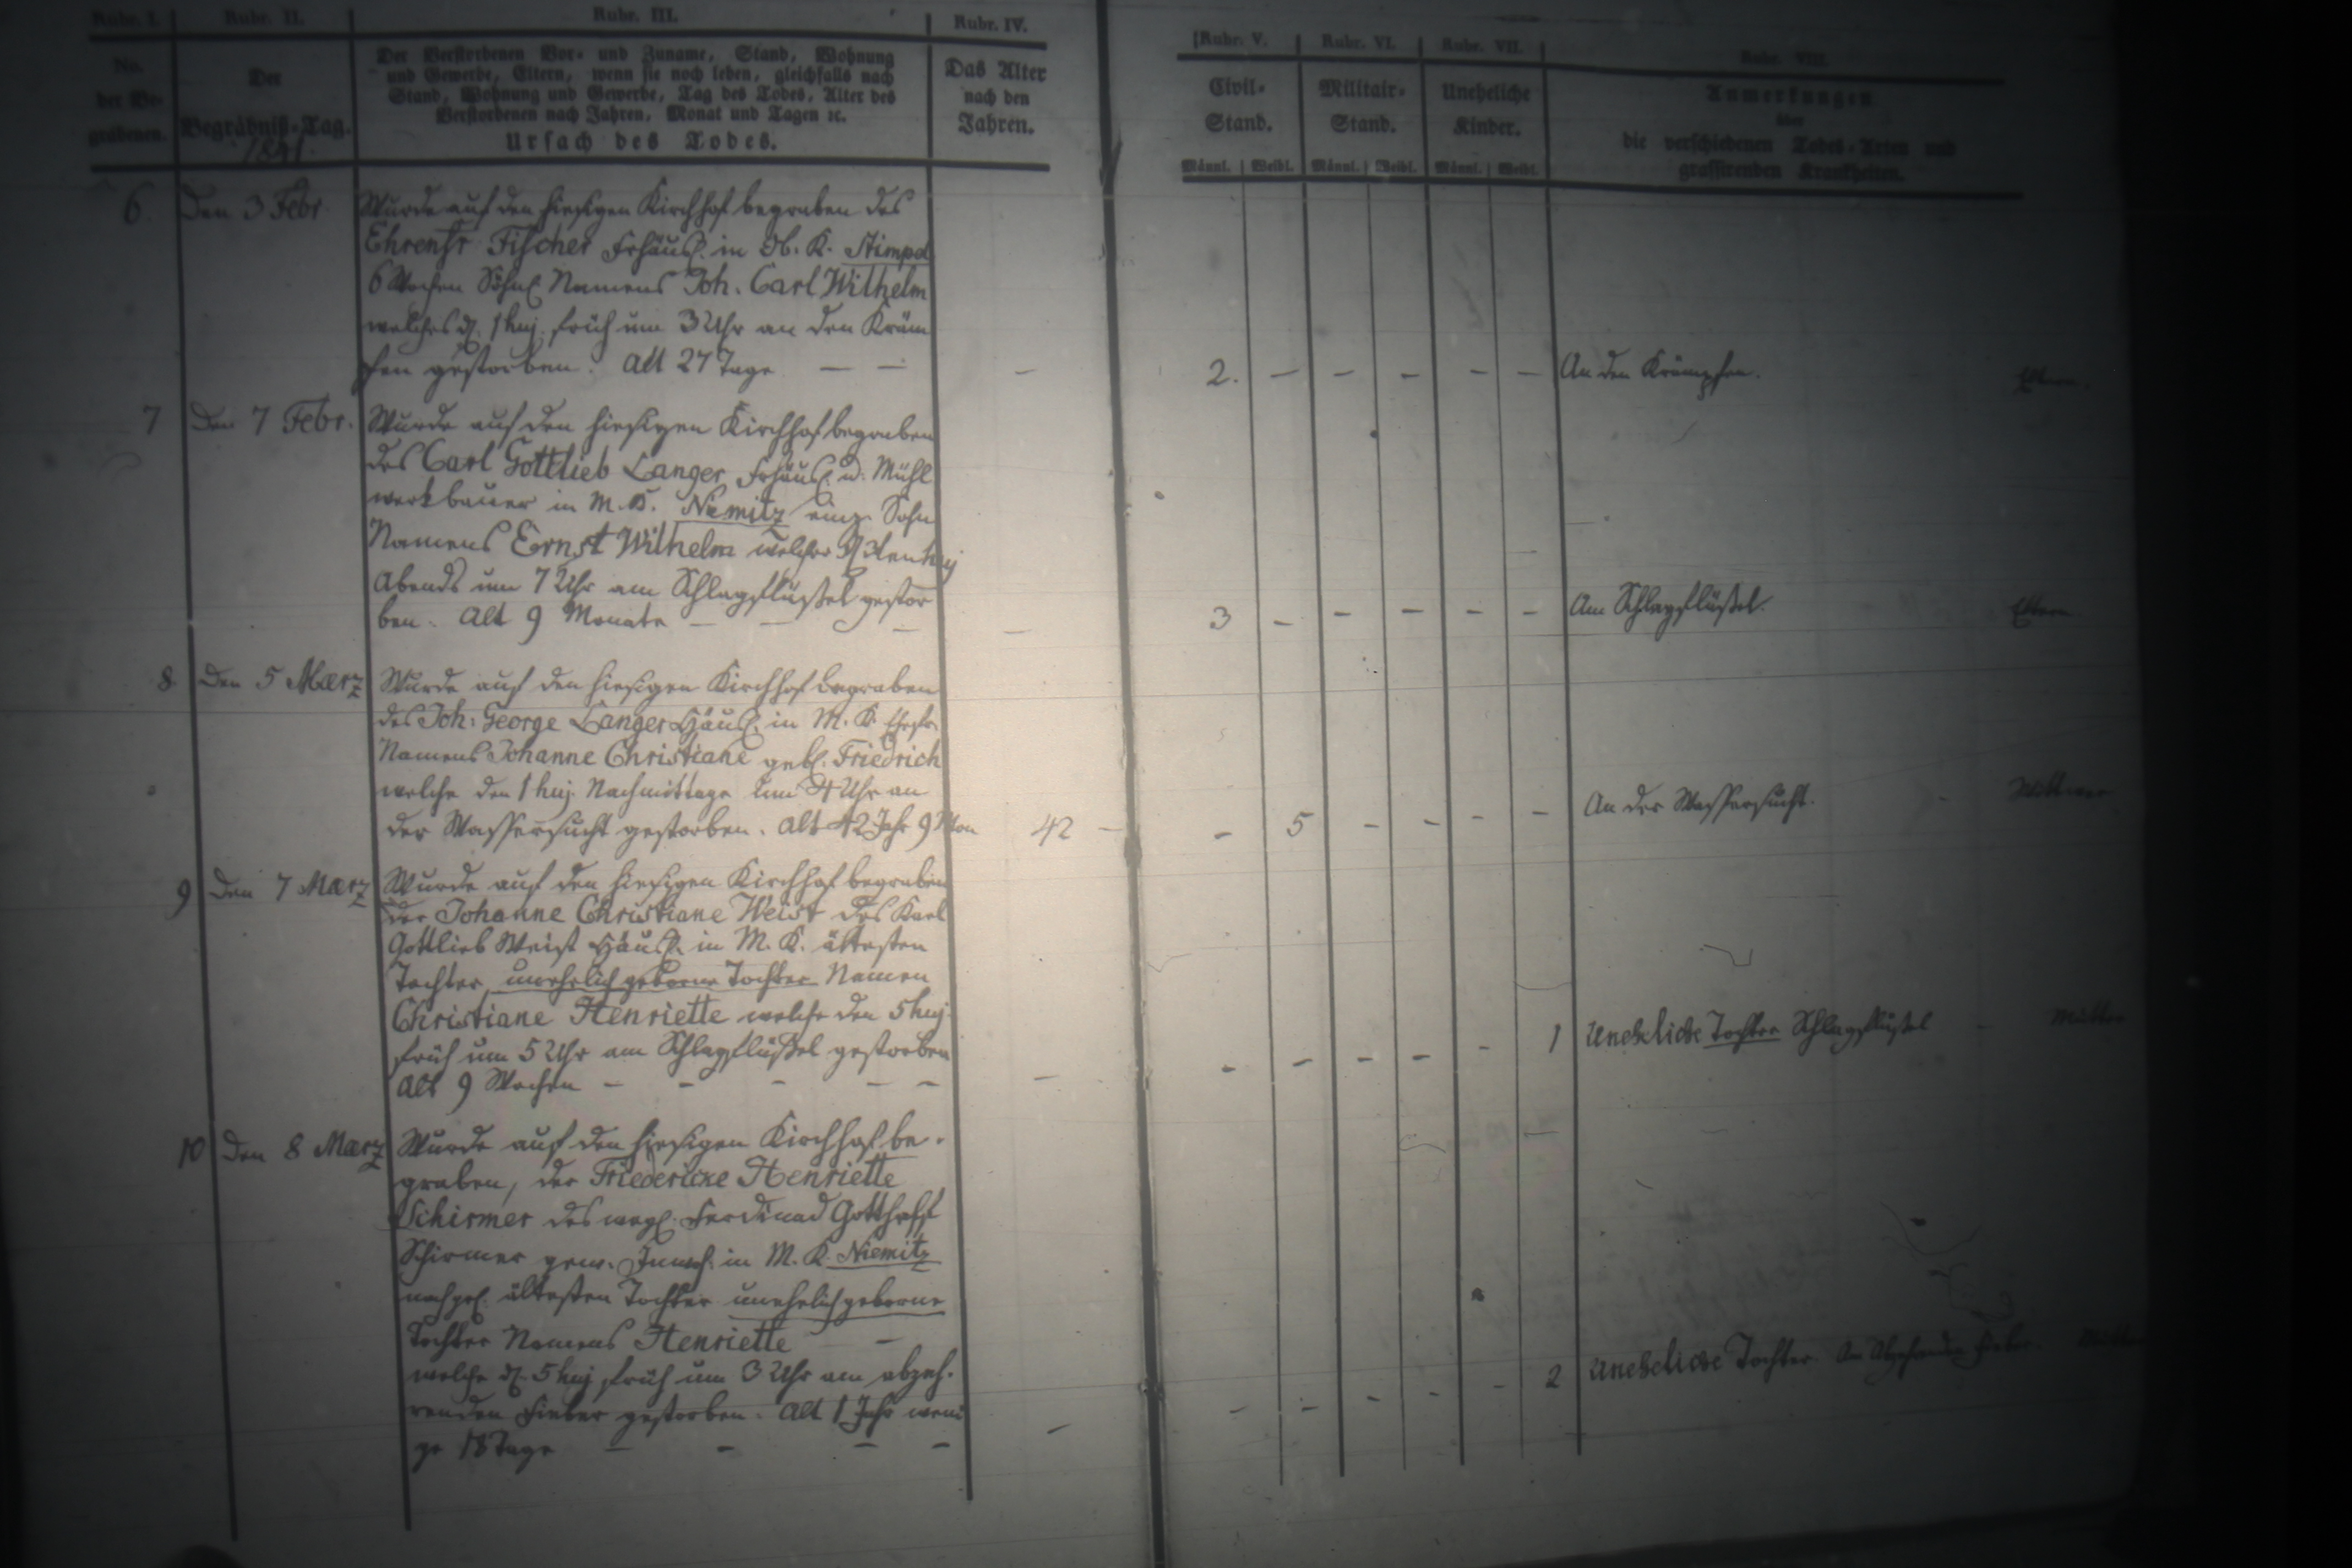 Rubr. I. Rubr. II. Rubr. III. Rubr. IV. Rubr. V. Rubr. VI. Rubr. VII. Rubr. VIII.
No. der Be-grabenen.
Der Begräbniß-Tag.
1841.
Der Verstorbenen Vor- und Zuname, Stand, Wohnung
und Gewerbe, Eltern, wenn sie noch leben, gleichfalls nach
Stand, Wohnung und Gewerbe, Tag des Todes, Alter des
Verstorbenen nach Jahren, Monat und Tagen ec.
Ursach des Todes.
Das Alter
nach den
Jahren.
Civil-
Stand.
Militair-
Stand.
Uneheliche
Kinder.
Anmerkungen
über
die verschiedenen Todes-Arten und
grassirenden Krankheiten.
Männl. Weibl. Männl. Weibl. Männl. Weibl.
6. Den 3 Febr. Wurde auf den hiesigen Kirchhof begraben des
Ehrenfr Fischer Frhäusl. in Ob. K. Stimpel
6 Wochen Söhnl Namens Joh. Carl Wilhelm
welches d. 1 huj. früh um 3 Uhr an den Kräm
pfen gestorben. Alt 27 Tage — — — 2. — — — — — An den Krämpfen. Eltern.
7 Den 7 Febr. Wurde auf den hiesigen Kirchhof begraben
des Carl Gottlieb Langer Frhäusl. u. Mühl
werkbauer in M. K. Niemitz einz. Sohn
Namens Ernst Wilhelm welcher d. huj
Abends um 7 Uhr am Schlagflüßel gestor
ben. Alt 9 Monate — — — — 3 — — — — — Am Schlagflüßel. Eltern
8. Den 5 Maerz Wurde auf den hiesigen Kirchhof begraben
des Joh: George Langer Häusl. in M. K. Ehefr.
Namens Johanne Christiane gebl. Friedrich
welche den 1 huj. Nachmittags um 4 Uhr an
der Wassersucht gestorben. Alt 42 Jahr 9 Mon 42 — — 5 — — — — An der Wassersucht. Wittwer
9 Den 7 Maerz Wurde auf den hiesigen Kirchhof begraben
der Johanne Christiane Weist des Karl
Gottlieb Weist Häusl. in M. K. ältesten
Tochter, unehelich geborne Tochter Namen
Christiane Henriette welche den 5 huj.
früh um 5 Uhr am Schlagflüßel gestorben
Alt 9 Wochen — — — — — — — — — — — 1 Uneheliche Tochter Schlagflüßel Mutter
10 Den 8 Maerz Wurde auf den hiesigen Kirchhof be-
graben, der Friedericke Henriette
Schirmer des weyl. Ferdinad Gotthelf
Schirmer gew. Inwoh. in M. K. Niemitz
nachgel. ältesten Tochter unehelich geborne
Tochter Namens Henriette —
welche d. 5 huj früh um 3 Uhr am abzeh-
renden Fieber gestorben. Alt 1 Jahr weni
ge 18 Tage — — — — — — — — — — 2 Uneheliche Tochter. Am Abzehrenden Fieber. Mutter